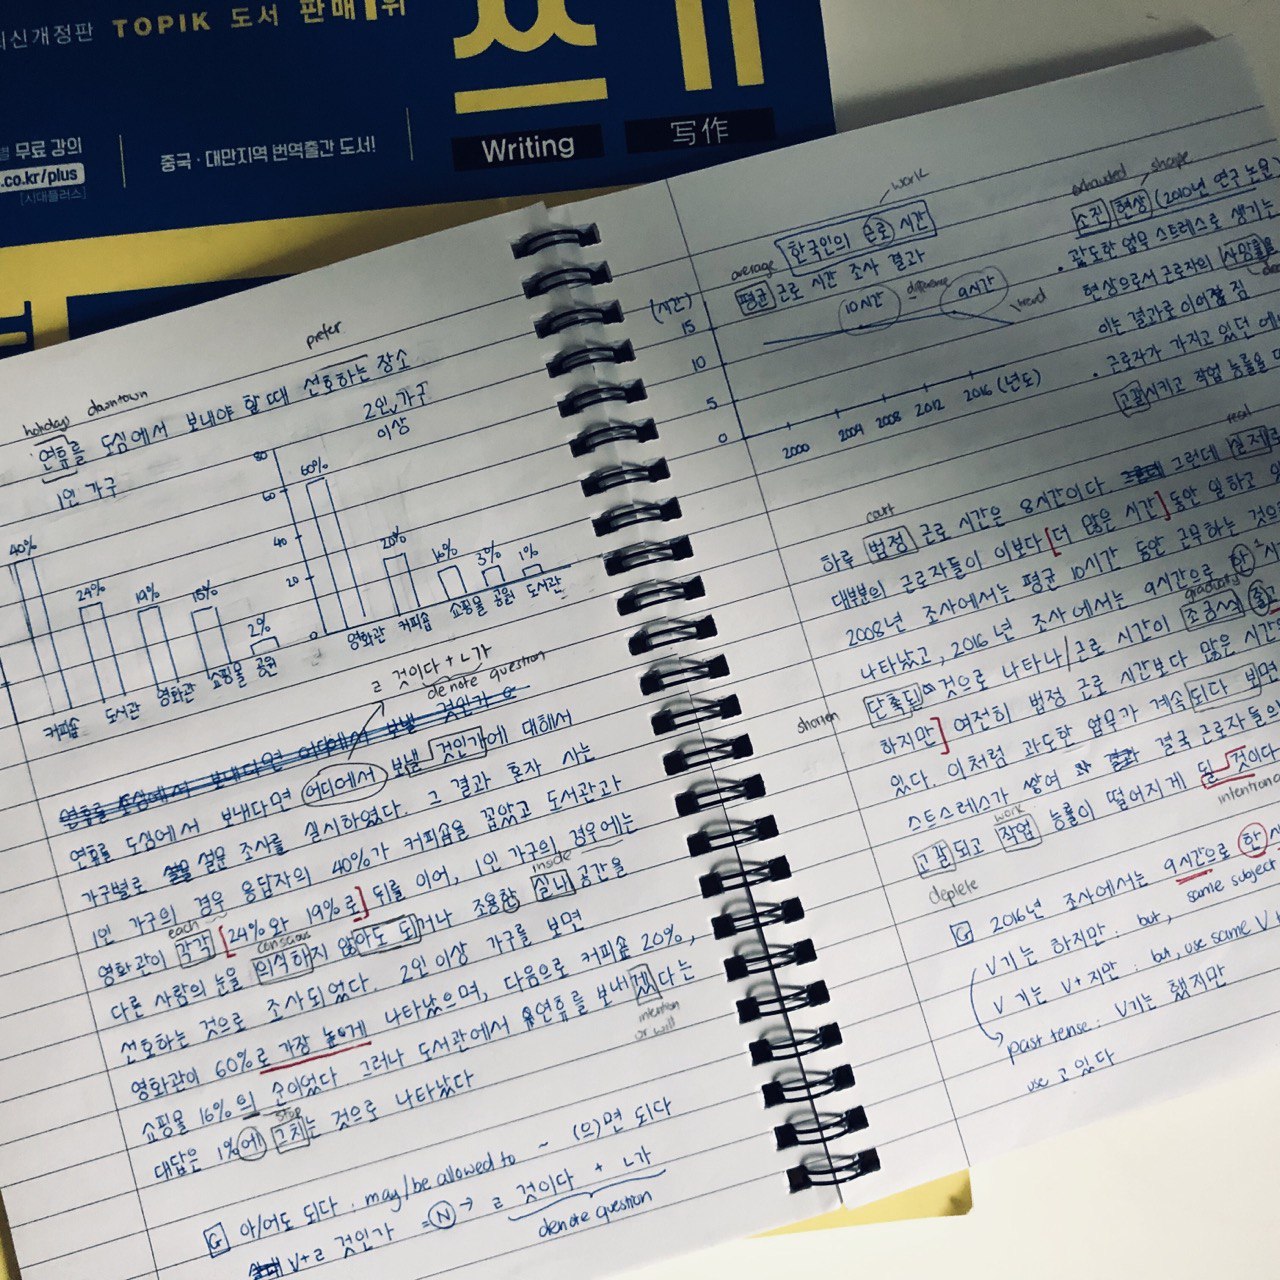 신개정판 TOPIK 도서 판매 1위
무료 강의
.co.kr/plus
[시대플러스]
중국·대만지역 번역출간 도서!
쓰기
Writing
写作
prefer
holidays downtown
연휴를 도심에서 보내야 할 때 선호하는 장소
1인 가구
40%
24%
19%
15%
2%
커피숍
도서관
영화관
쇼핑몰
공원
2인 가구
이상
80
60
40
20
0
60%
20%
16%
3%
1%
영화관
커피숍
쇼핑몰
공원
도서관
ㄹ 것이다 + ㄴ가
denote question
연휴를 도심에서 보내다면 어디에서 보낼 것인가
연휴를 도심에서 보낸다면 어디에서 보낼 것인가에 대해서
가구별로 설문 조사를 실시하였다. 그 결과 혼자 사는
1인 가구의 경우 응답자의 40%가 커피숍을 꼽았고 도서관과
each
inside
영화관이 각각 [24%와 19%로] 뒤를 이어, 1인 가구의 경우에는
conscious
다른 사람의 눈을 의식하지 않아도 되거나 조용한 실내 공간을
선호하는 것으로 조사되었다. 2인 이상 가구를 보면
영화관이 60%로 가장 높게 나타났으며, 다음으로 커피숍 20%,
쇼핑몰 16%의 순이었다 그러나 도서관에서 연휴를 보내겠다는
intention or will
stop
대답은 1%에 그치는 것으로 나타났다
G 아/어도 되다 : may/be allowed to ~ (으)면 되다
V+ㄹ 것인가 = N → ㄹ 것이다 + ㄴ가
denote question
work
한국인의 근로 시간
average
평균 근로 시간 조사 결과
(시간)
15
10
5
0
10시간
difference
9시간
trend
2000
2004
2008
2012
2016 (년도)
exhausted
shape
소진 현상 (2010년 연구 논문
• 과도한 업무 스트레스로 생기는
현상으로서 근로자의 사망률을
이는 결과로 이어짐
• 근로자가 가지고 있던
고갈시키고 작업 능률을
court
real
하루 법정 근로 시간은 8시간이다. 그런데 실제
대부분의 근로자들이 이보다 [더 많은 시간] 동안 일하고
2008년 조사에서는 평균 10시간 동안 근무하는 것으
나타났고, 2016년 조사에서는 9시간으로 한
gradually
shorten
단축될 것으로 나타나/근로 시간이 조금씩 줄고
하지만] 여전히 법정 근로 시간보다 많은 시간
있다. 이처럼 과도한 업무가 계속되다 보면
스트레스가 쌓여 결국 근로자들의
work
고갈되고 작업 능률이 떨어지게 될 것이다
deplete
intention
G 2016년 조사에서는 9시간으로 한
V기는 하지만 : but, same subject
V기는 V+지만 : but, use same V
past tense : V기는 했지만
use 고 있다